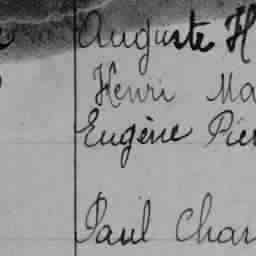 Auguste H
Henri Ma
Eugène Pier
Paul Char